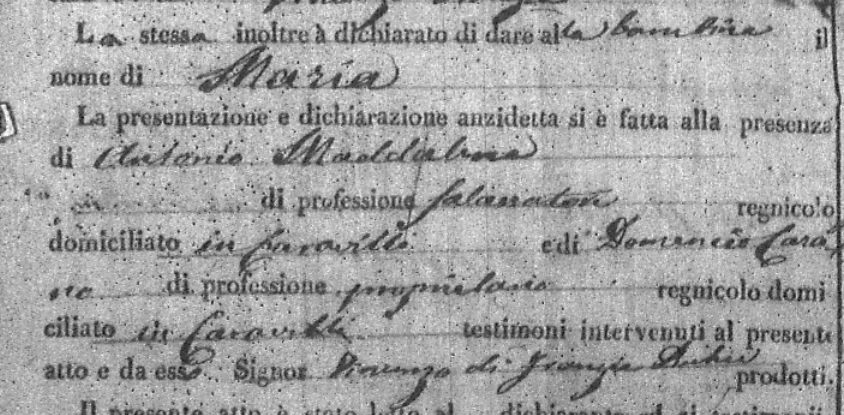 La stessa inoltre à dichiarato di dare alla bambina il
nome di Maria
La presentazione e dichiarazione anzidetta si è fatta alla presenza
di Antonio Maddalena
di professione regnicolo
domiciliato in e di Domenico Cara
no di professione proprietario regnicolo domi
ciliato in testimoni intervenuti al presente
atto e da esso Signor Vincenzo di prodotti.
Il presente atto è stato letto al dichiarante ed ai testimoni